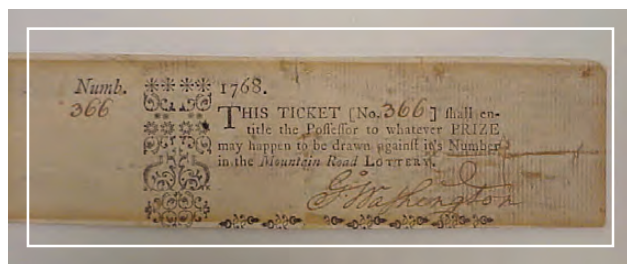 Numb.
366
1768.
THIS TICKET [No. 366] ſhall en-
title the Poſſeſſor to whatever PRIZE
may happen to be drawn againſt it's Number
in the Mountain Road LOTTERY.
G:Waſhington